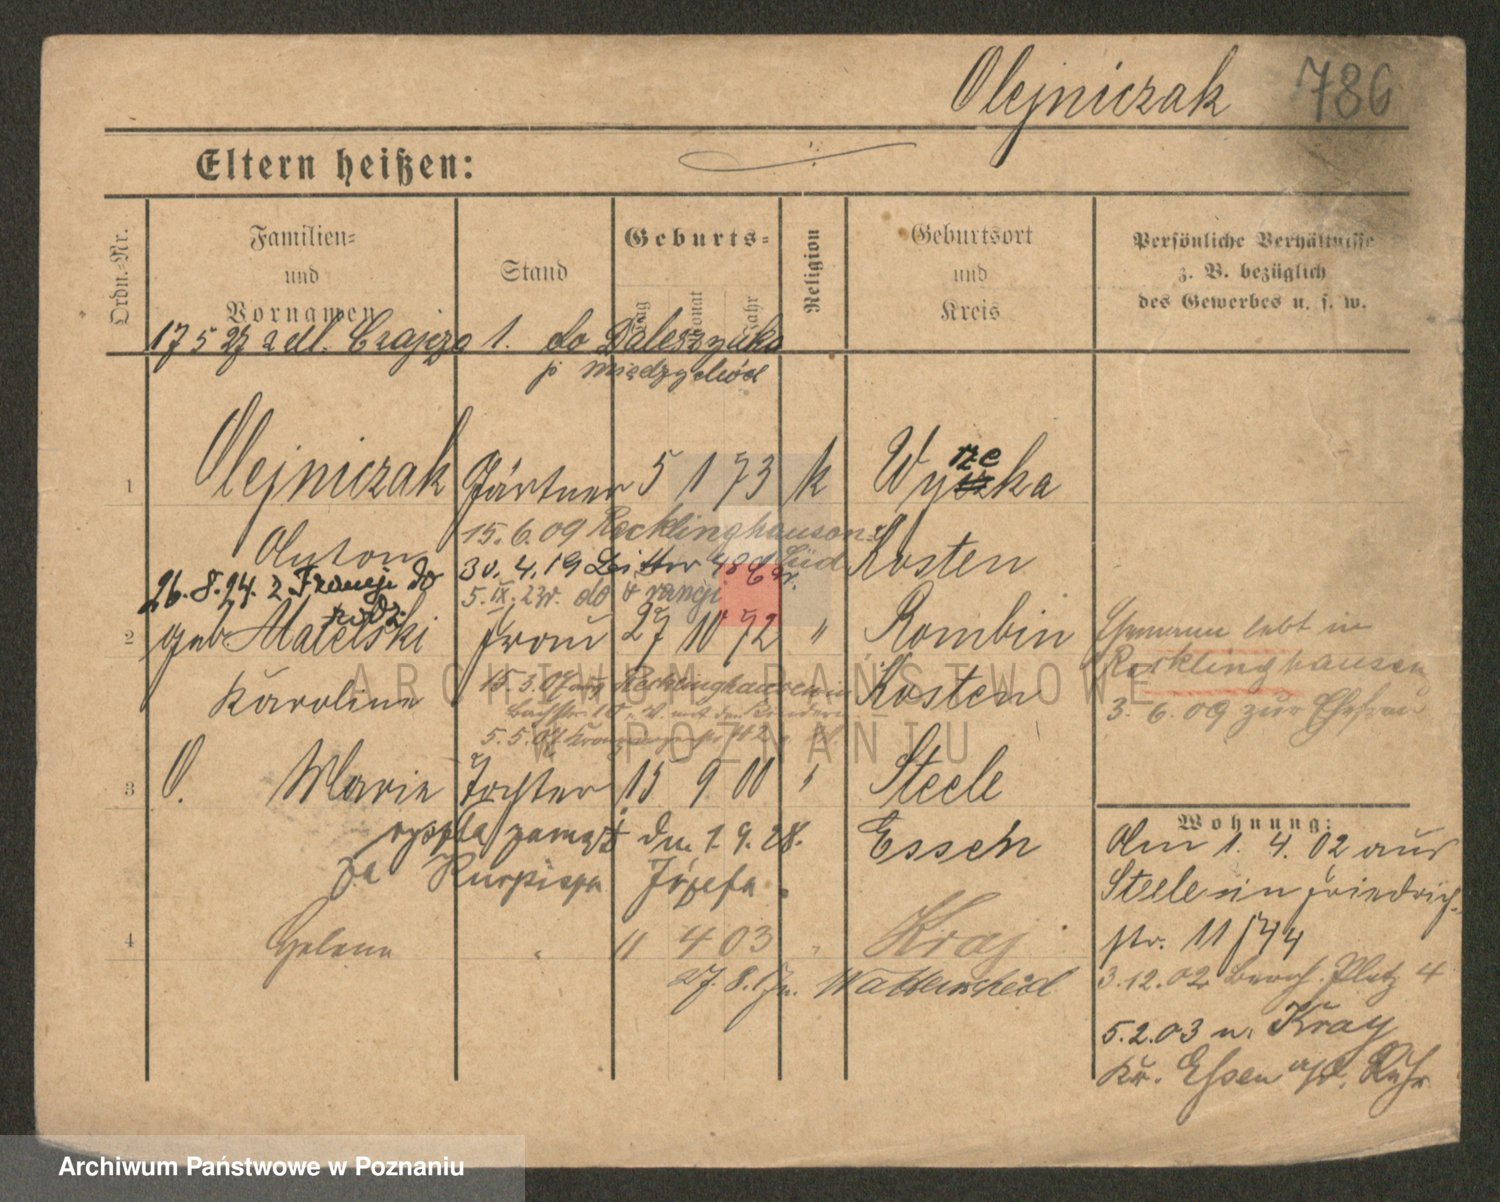 Olejniczak 786
Eltern heißen:
Ordn.-Nr.
Familien-
und
Vornamen
Stand
Geburts-
Tag
Monat
Jahr
Religion
Geburtsort
und
Kreis
Persönliche Verhältnisse
z. B. bezüglich
des Gewerbes u. s. w.
17 5 27 adl. 1. do Daleszynka
p Międzychód
1 Olejniczak Gärtner 5 1 73 k Wyrzeka
15.6.09 Recklinghausen
Anton Süd Kosten
30.4.19 Bitter 48
26.8.24. z Francji do
5. IX. 23r. do Francji
rodz.
2 geb. Matelski Frau 27 10 72 " Rombin
Karoline Kosten
15.3.09 Recklinghausen
mit den Kindern
5.5.09
Ehemann lebt in
Recklinghausen
3. 6. 09 zur Ehefrau
3 O. Marie Tochter 15 9 00 " Steele
Essen
wyszła zamąż dn. 1. 9. 28.
za Kurpisza Józefa.
4 Helene " 11 4 03 " Kray
27. 8. Wattenscheid
Wohnung:
Am 1. 4. 02 aus
Steele in Friedrich-
str. 11/44
3.12.02 Platz 4
5.2.03 n. Kray
Kr. Essen a/d. Ruhr
ARCHIWUM PAŃSTWOWE
W POZNANIU
Archiwum Państwowe w Poznaniu